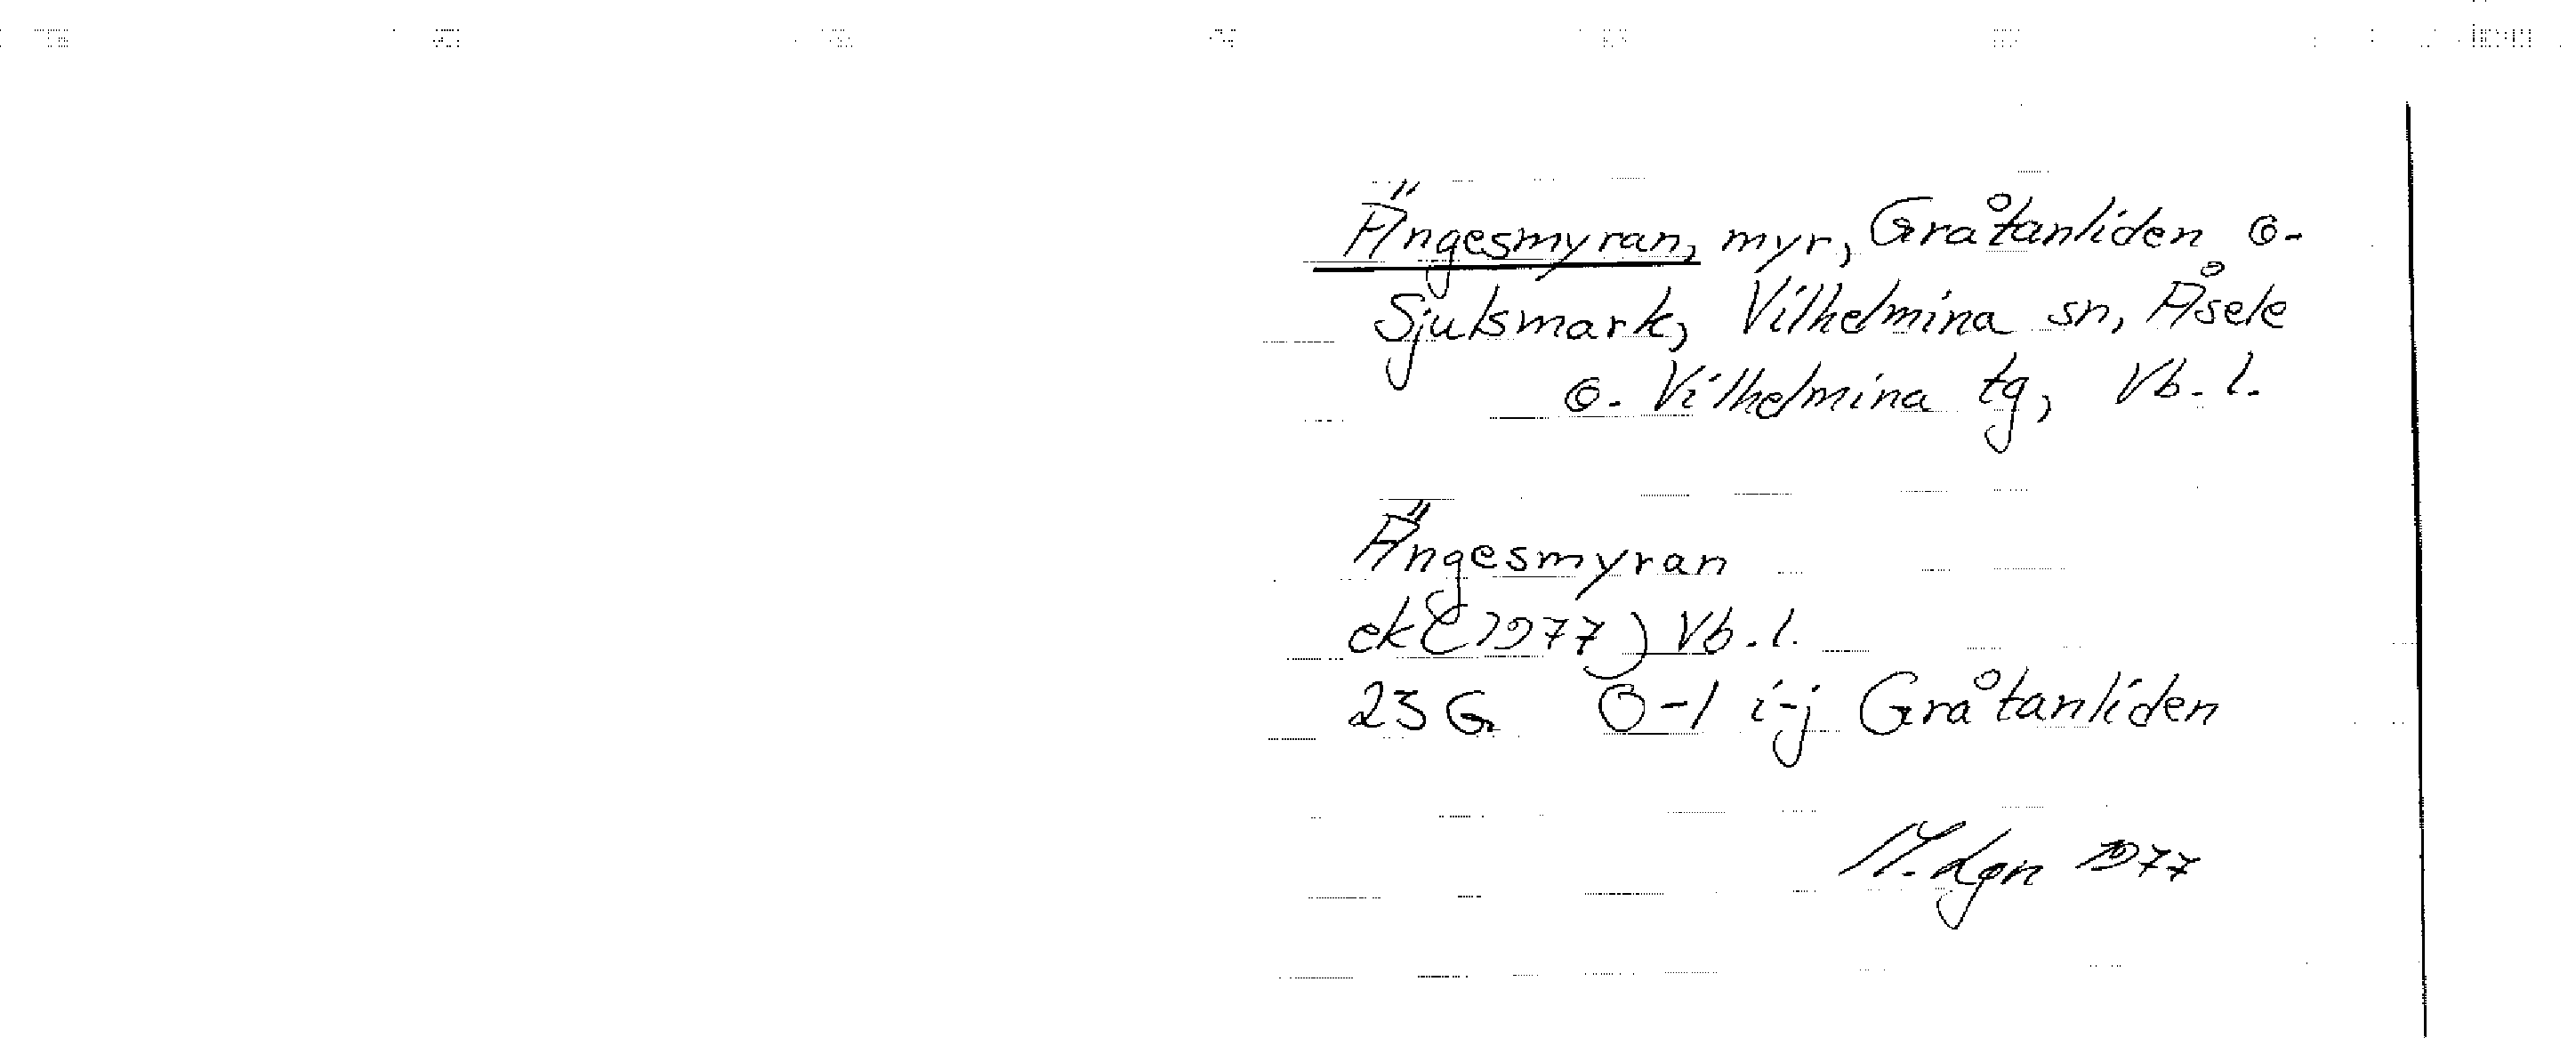 Ängesmyran, myr, Gråtanliden o.
Sjulsmark, Vilhelmina sn, Åsele
o. Vilhelmina tg, Vb. l.
Ängesmyran
ek (1977) Vb. l.
23 G 0-1 i-j Gråtanliden
M. Lgn 1977